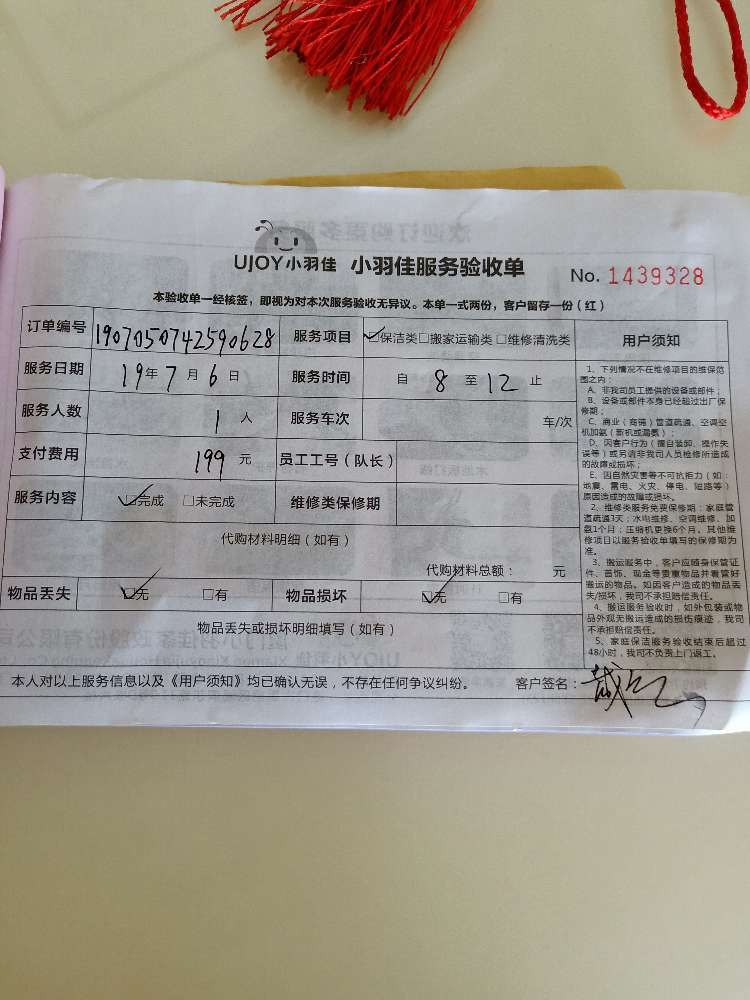 UJOY小羽佳 小羽佳服务验收单 No. 1439328
本验收单一经核签，即视为对本次服务验收无异议。本单一式两份，客户留存一份（红）
订单编号 1907050742590628 服务项目 ☑保洁类□搬家运输类□维修清洗类
服务日期 19年7月6日 服务时间 自 8 至 12 止
服务人数 1人 服务车次 车/次
支付费用 199元 员工工号（队长）
服务内容 ☑完成 □未完成 维修类保修期
代购材料明细（如有）
代购材料总额： 元
物品丢失 ☑无 □有 物品损坏 ☑无 □有
物品丢失或损坏明细填写（如有）
本人对以上服务信息以及《用户须知》均已确认无误，不存在任何争议纠纷。 客户签名：
用户须知
1、下列情况不在维修项目的维保范
围之内：
A、非我司员工提供的设备或部件；
B、设备或部件本身已经超过出厂保
修期；
C、商业（商铺）管道疏通、空调空
机加氨（新机或漏氨）；
D、因客户行为（擅自装卸、操作失
误等）或另请非我司人员检修所造成
的故障或损坏；
E、因自然灾害等不可抗拒力（如：
地震、雷电、火灾、停电、短路等）
原因造成的故障或损坏。
2、维修类服务免费保修期：家庭管
道疏通3天；水电维修、空调维修、加
氨1个月；压缩机更换6个月。其他维
修项目以服务验收单填写的保修期为
准。
3、搬运服务中，客户应随身保管证
件、首饰、现金等贵重物品并看管好
搬运的物品。如因客户造成的物品丢
失/损坏，我司不承担赔偿责任。
4、搬运服务验收时，如外包装或物
品外观无搬运造成的损伤痕迹，我司
不承担赔偿责任。
5、家庭保洁服务验收结束后超过
48小时，我司不负责上门返工。